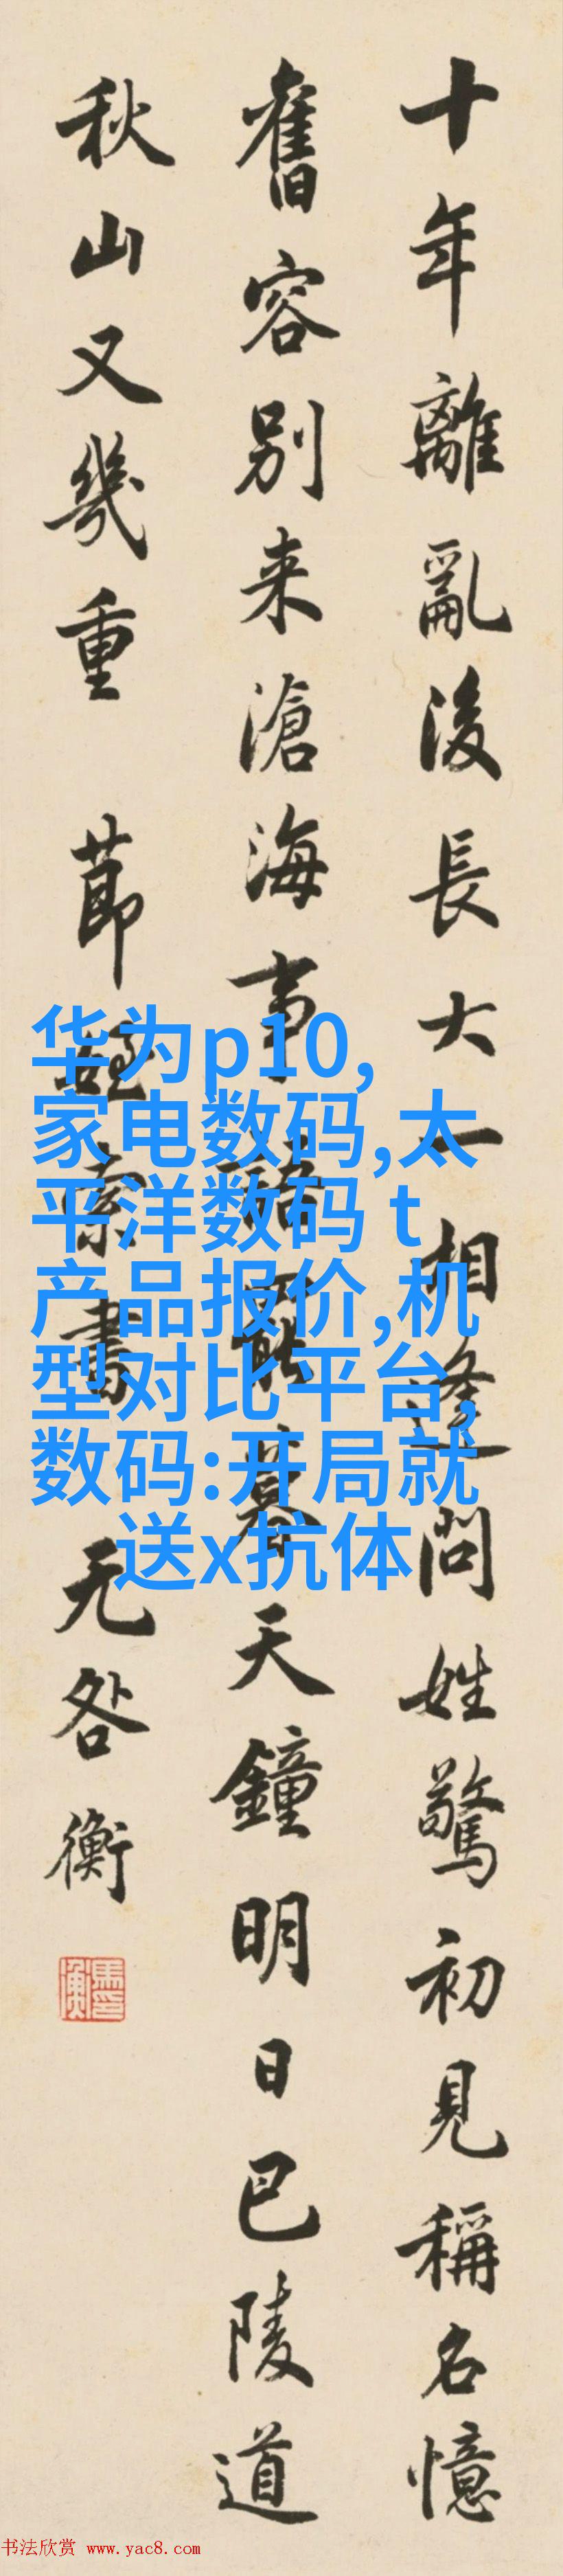 十年離亂後長大一相逢問姓驚初見稱名憶
舊容別来滄海事語罷暮天鐘明日巴陵道
秋山又幾重 莭姪索書 无咎衡
馬衡印
华为p10,
家电数码,太
平洋数码 t
产品报价,机
型对比平台,
数码:开局就
送x抗体
书法欣赏 www.yac8.com